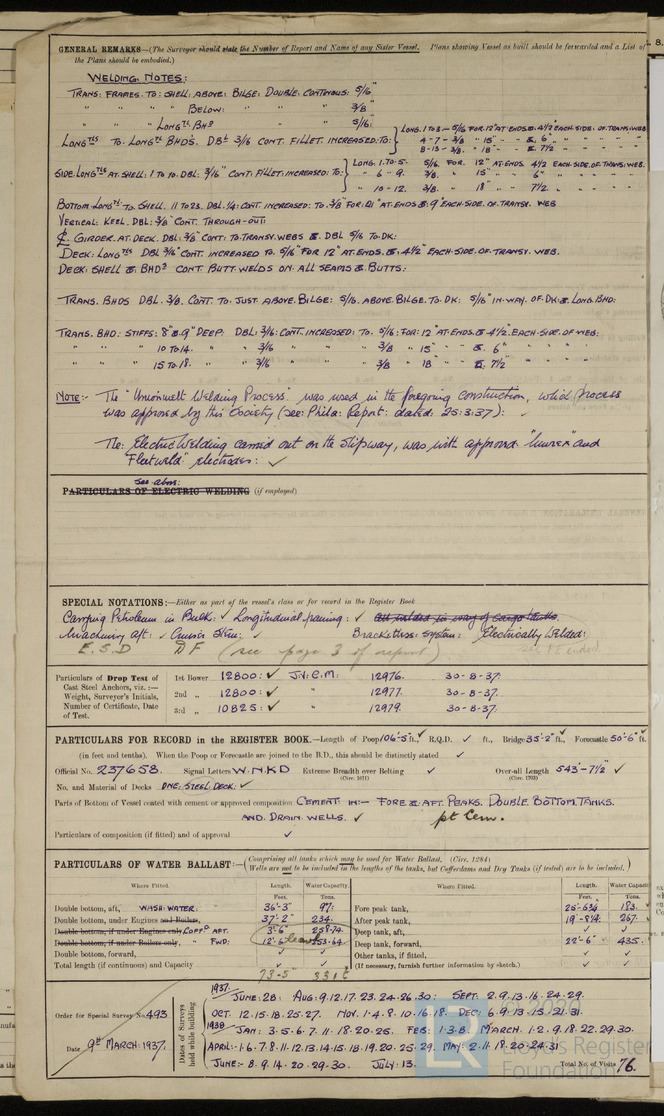 GENERAL REMARKS—(The Surveyor should state the Number of Report and Name of any Sister Vessel. Plans showing Vessel as built should be forwarded and a List of
the Plans should be embodied.)
WELDING NOTES:
TRANS: FRAMES. TO: SHELL: ABOVE: BILGE: DOUBLE: CONTINOUS: 5/16"
" " " " BELOW: " " 3/8"
" " " LONGTL BHD " " 5/16:
LONGTLS TO LONGTL BHD'S. DBL 3/16 CONT. FILLET. INCREASED: TO:
LONG. 1 TO 3 — 5/16 FOR 12" AT ENDS & 4½ EACH SIDE. OF. TRANS: WEB
4-7 - 3/8 " 15" " & 6" " " "
8-13 - 3/8. " 18" " & 7½ " " "
SIDE. LONGTLS AT. SHELL: 1 TO 10. DBL: 3/16" CONT: FILLET INCREASED: TO:
LONG. 1. TO. 5. 5/16. FOR. 12" AT: ENDS. 4½ EACH. SIDE. OF. TRANS: WEB.
" 6 - 9. 3/8. " 15" " 6" " " "
" 10 - 12. 3/8. " 18" " 7½. " " "
BOTTOM. LONGTL: TO. SHELL. 11 TO 23. DBL. ¼: CONT: INCREASED: TO: 3/8" FOR: 21" AT ENDS & 9" EACH. SIDE OF. TRANSV. WEB
VERTICAL: KEEL. DBL: 3/8" CONT. THROUGH-OUT:
℄. GIRDER. AT. DECK. DBL: 3/8" CONT: TO. TRANSV. WEBS & DBL 5/16 TO. DK:
DECK: LONGTLS DBL 3/16" CONT. INCREASED TO: 5/16" FOR 12" AT. ENDS. & 4½" EACH. SIDE. OF. TRANSV. WEB.
DECK: SHELL & BHDS CONT BUTT. WELDS. ON. ALL SEAMS & BUTTS:
TRANS. BHDS DBL. 3/8. CONT. TO JUST ABOVE. BILGE: 5/16. ABOVE. BILGE. TO. DK: 5/16" IN. WAY. OF. DK: & LONG. BHD:
TRANS. BHD: STIFFS: 8" & 9" DEEP. DBL: 3/16: CONT. INCREASED: TO. 5/16: FOR: 12" AT. ENDS. & 4½". EACH. SIDE. OF WEB:
" " " 10 TO 14. " " 3/16 " " " 3/8 " 15" " " & 6" " " " "
" " " 15 TO 18. " " 3/16 " " " 3/8 " 18 " " & 7½" " " "
NOTE:- The "Unionmelt Welding Process" was used in the foregoing construction, which process
was approved by this Society (see: Phila: Report: dated: 25:3:37):
The: Electric Welding carried out on the slipway, was with approved "Murex" and
"Fleetweld" electrodes: ✓
see above:
PARTICULARS OF ELECTRIC WELDING (if employed)
SPECIAL NOTATIONS:—Either as part of the vessel's class or for record in the Register Book
Carrying Petroleum in Bulk: ✓ Longitudinal framing: ✓ All welded in way of cargo tanks.
Machinery aft: ✓ Cruiser Stern: ✓ Bracketless: System: Electrically Welded:
E.S.D DF (see page 3 of report)
Particulars of Drop Test of
Cast Steel Anchors, viz.:—
Weight, Surveyor's Initials,
Number of Certificate, Date
of Test.
1st Bower 12800: ✓ J.V.C.M: 12976. 30-8-37.
2nd " 12800: ✓ " 12977. 30-8-37.
3rd " 10825: ✓ " 12979. 30-8-37.
PARTICULARS FOR RECORD in the REGISTER BOOK.—Length of Poop 106'-5" ft., ✓ R.Q.D. ✓ ft., Bridge 35'-2" ft., Forecastle 50'-6" ft.
(in feet and tenths). When the Poop or Forecastle are joined to the B.D., this should be distinctly stated ✓
Official No. 237658. Signal Letters W.N.K.D Extreme Breadth over Belting ✓ Over-all Length 543'-7½" ✓
(Circ. 1611) (Circ. 1703)
No. and Material of Decks ONE: STEEL DECK: ✓
Parts of Bottom of Vessel coated with cement or approved composition CEMENT IN:— FORE & AFT. PEAKS. DOUBLE BOTTOM. TANKS.
AND. DRAIN. WELLS. ✓ pt Cem.
Particulars of composition (if fitted) and of approval ✓
PARTICULARS OF WATER BALLAST:—(Comprising all tanks which may be used for Water Ballast. (Circ. 1284)
Wells are not to be included in the lengths of the tanks, but Cofferdams and Dry Tanks (if tested) are to be included.)
Where Fitted. Length. Water Capacity. Where Fitted. Length. Water Capacity
Feet. Tons. Feet. Tons.
Double bottom, aft, WASH: WATER: 36'-3" 97: Fore peak tank, 25'-6¾ 183.
Double bottom, under Engines and Boilers, 37'-2" 234. After peak tank, 19'-8¼: 267.
Double bottom, if under Engines only, COFFD AFT. 3'-6" 258.74. Deep tank, aft, ✓
Double bottom, if under Boilers only, " FWD: 12'-6 253.64. Deep tank, forward, 22'-6" 435.
Double bottom, forward, ✓ ✓ Other tanks, if fitted, ✓ ✓
Total length (if continuous) and Capacity ✓ ✓ (If necessary, furnish further information by sketch.) ✓ ✓
73-5" 331
Order for Special Survey No. 493
Date 9th MARCH 1937.
Dates of Surveys held while building
1937. JUNE: 28: AUG: 9.12.17.23.24.26.30: SEPT: 2.9.13.16.24.29.
OCT. 12.15.18.25.27. NOV. 1.4.8.10.16.18. DEC: 6.9.13.15.21.31.
1938 JAN: 3.5.6.7.11.18.20.25. FEB: 1.3.8. MARCH. 1.2.9.18.22.29.30.
APRIL:- 1.6.7.8.11.12.13.14.15.18.19.20.25.29. MAY: 2.11.18.20.24.31
JUNE:- 8.9.14.20.29.30. JULY: 13. Total No. of Visits 76.
© 2020
LR
Lloyd's Register
Foundation